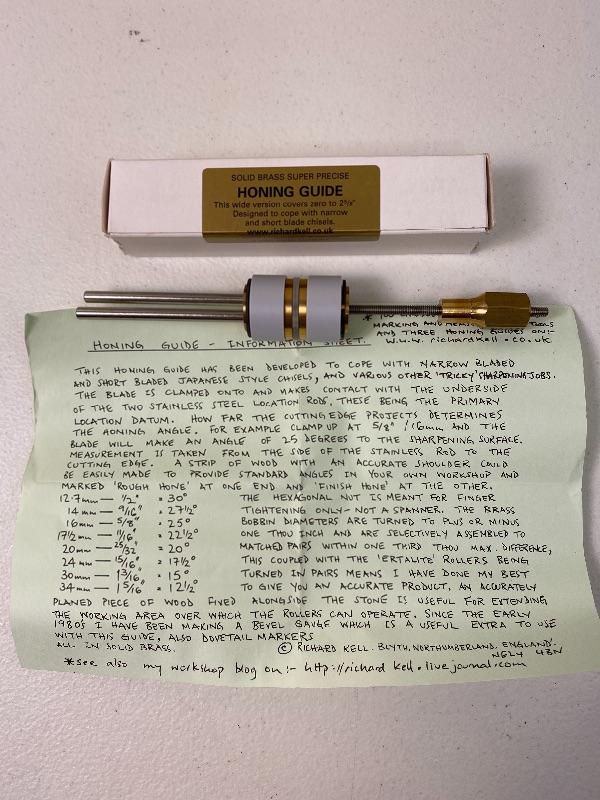 SOLID BRASS SUPER PRECISE
HONING GUIDE
This wide version covers zero to 2⅝"
Designed to cope with narrow
and short blade chisels.
www.richardkell.co.uk
MARKING AND TOOLS
AND THREE HONING GUIDES ON:-
w.w.w. richardkell.co.uk
HONING GUIDE - INFORMATION SHEET.
THIS HONING GUIDE HAS BEEN DEVELOPED TO COPE WITH NARROW BLADED
AND SHORT BLADED JAPANESE STYLE CHISELS, AND VARIOUS OTHER 'TRICKY' SHARPENING JOBS.
THE BLADE IS CLAMPED ONTO AND MAKES CONTACT WITH THE UNDERSIDE
OF THE TWO STAINLESS STEEL LOCATION RODS, THESE BEING THE PRIMARY
LOCATION DATUM. HOW FAR THE CUTTING EDGE PROJECTS DETERMINES
THE HONING ANGLE. FOR EXAMPLE CLAMP UP AT 5/8" /16mm AND THE
BLADE WILL MAKE AN ANGLE OF 25 DEGREES TO THE SHARPENING SURFACE.
MEASUREMENT IS TAKEN FROM THE SIDE OF THE STAINLESS ROD TO THE
CUTTING EDGE. A STRIP OF WOOD WITH AN ACCURATE SHOULDER COULD
BE EASILY MADE TO PROVIDE STANDARD ANGLES IN YOUR OWN WORKSHOP AND
MARKED 'ROUGH HONE' AT ONE END AND 'FINISH HONE' AT THE OTHER.
12.7mm — 1/2" = 30°
14mm — 9/16" = 27½°
16mm — 5/8" = 25°
17½mm — 11/16" = 22½°
20mm — 25/32" = 20°
24mm — 15/16" = 17½°
30mm — 1 3/16" = 15°
34mm — 1 5/16" = 12½°
THE HEXAGONAL NUT IS MEANT FOR FINGER
TIGHTENING ONLY - NOT A SPANNER. THE BRASS
BOBBIN DIAMETERS ARE TURNED TO PLUS OR MINUS
ONE THOU INCH AND ARE SELECTIVELY ASSEMBLED TO
MATCHED PAIRS WITHIN ONE THIRD THOU MAX. DIFFERENCE,
THIS COUPLED WITH THE 'ERTALITE' ROLLERS BEING
TURNED IN PAIRS MEANS I HAVE DONE MY BEST
TO GIVE YOU AN ACCURATE PRODUCT. AN ACCURATELY
PLANED PIECE OF WOOD FIXED ALONGSIDE THE STONE IS USEFUL FOR EXTENDING
THE WORKING AREA OVER WHICH THE ROLLERS CAN OPERATE. SINCE THE EARLY
1980s I HAVE BEEN MAKING A BEVEL GAUGE WHICH IS A USEFUL EXTRA TO USE
WITH THIS GUIDE, ALSO DOVETAIL MARKERS
ALL IN SOLID BRASS.
© RICHARD KELL. BLYTH, NORTHUMBERLAND, ENGLAND.
NE24 4BN
*see also my workshop blog on:- http://richard kell.livejournal.com